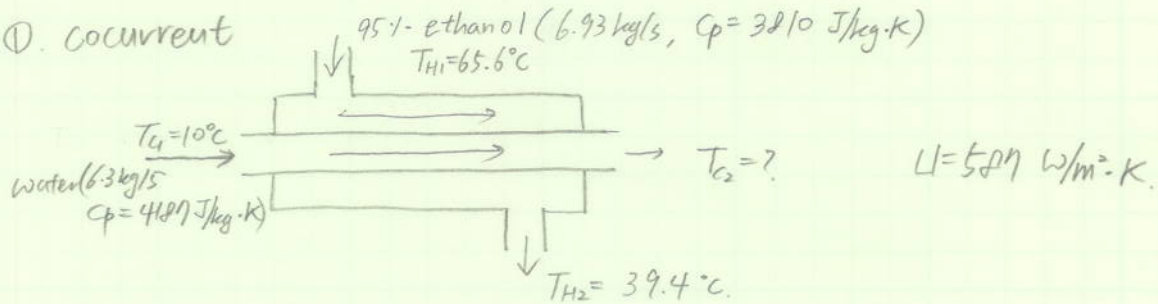 ①. cocurrent
95% ethanol (6.93 kg/s, Cp = 3810 J/kg·K)
T_H1 = 65.6°C
T_C1 = 10°C
water (6.3 kg/s
Cp = 4187 J/kg·K)
T_C2 = ?
U = 587 W/m²·K.
T_H2 = 39.4°C.